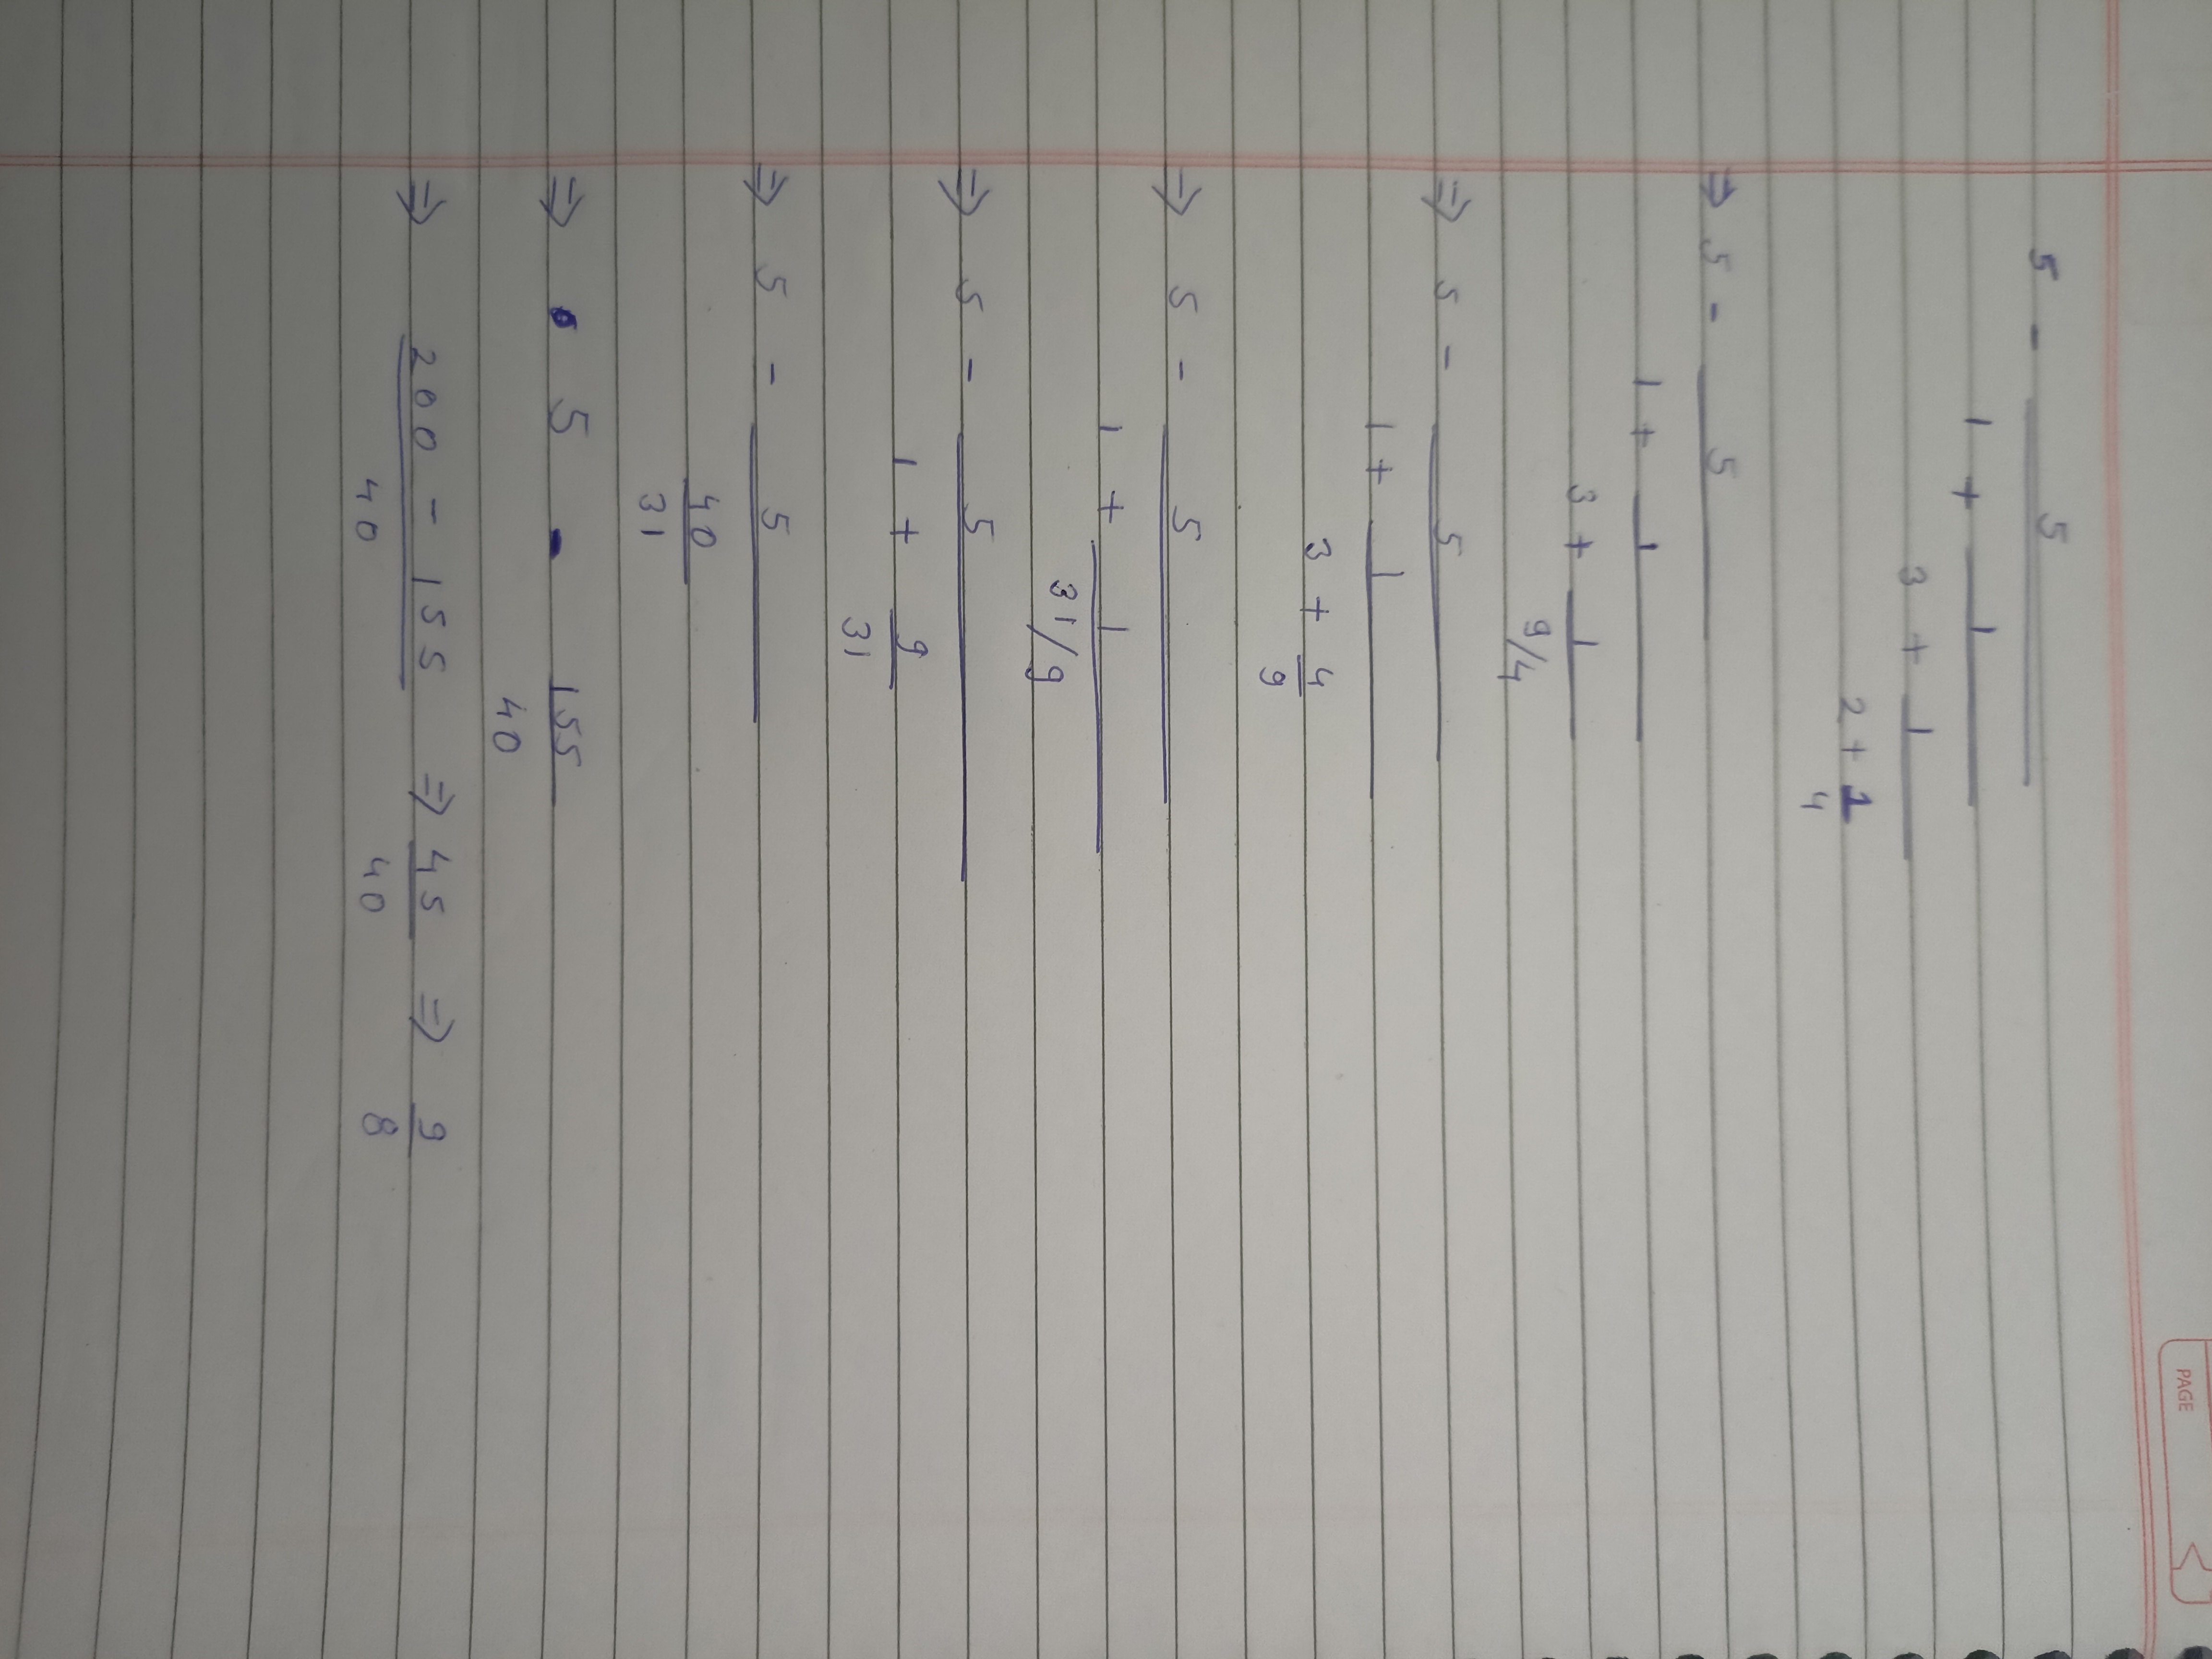 PAGE
5 - 5
1 + 1
3 + 1
2 + 1
4
⇒ 5 - 5
1 + 1
3 + 1
9/4
⇒ 5 - 5
1 + 1
3 + 4
9
⇒ 5 - 5
1 + 1
31/9
⇒ 5 - 5
1 + 9
31
⇒ 5 - 5
40
31
⇒ 5 - 155
40
⇒ 200 - 155 ⇒ 45 ⇒ 9
40 40 8